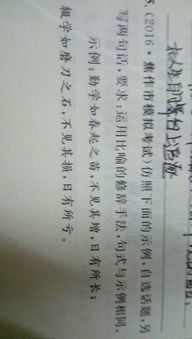 8.(2016·焦作市模拟考试)仿照下面的示例,自选话题,另
写两句话,要求:运用比喻的修辞手法,句式与示例相同。
示例:勤学如春起之苗,不见其增,日有所长;
辍学如磨刀之石,不见其损,日有所亏。